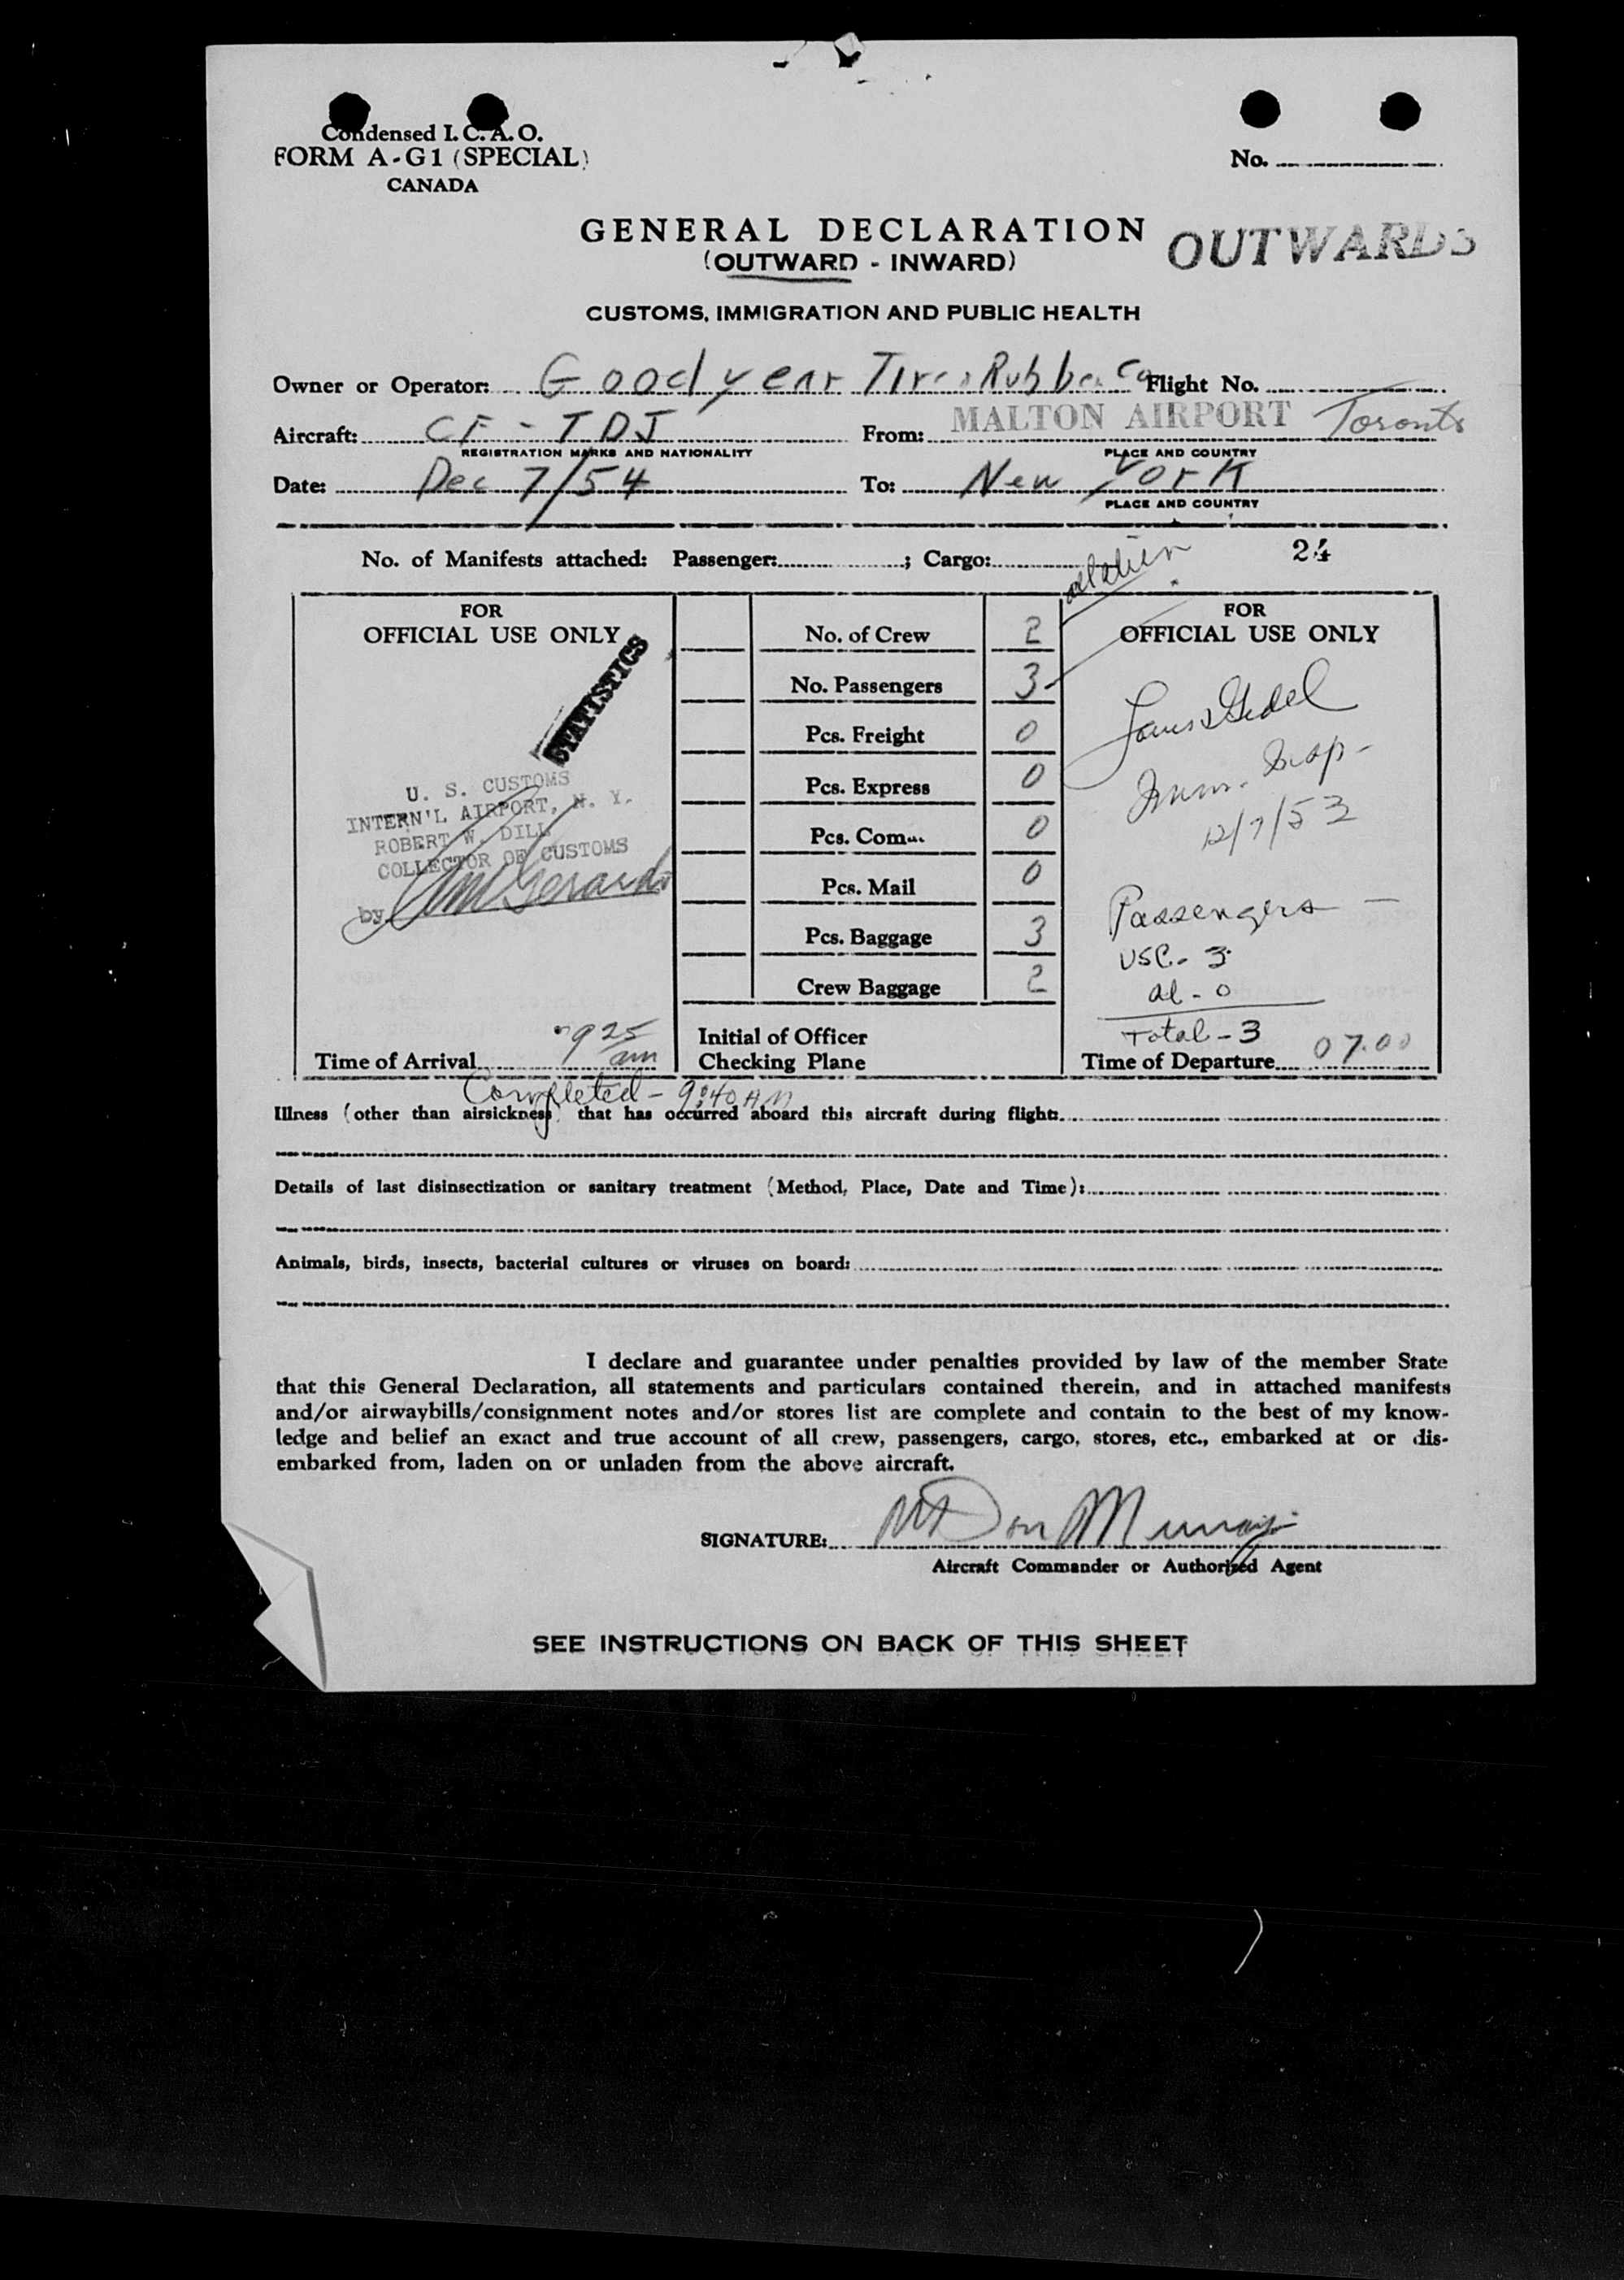 Condensed I.C.A.O.
FORM A-G1 (SPECIAL)
CANADA
No.
GENERAL DECLARATION
OUTWARDS
(OUTWARD - INWARD)
CUSTOMS, IMMIGRATION AND PUBLIC HEALTH
Owner or Operator: Goodyear Tire & Rubber Co Flight No.
Aircraft: CF - TDJ From: MALTON AIRPORT Toronto
REGISTRATION MARKS AND NATIONALITY PLACE AND COUNTRY
Date: Dec 7/54 To: New York
PLACE AND COUNTRY
No. of Manifests attached: Passenger: ; Cargo: 24
FOR
OFFICIAL USE ONLY
STATISTICS
U. S. CUSTOMS
INTERN'L AIRPORT, N. Y.
ROBERT W. DILL
COLLECTOR OF CUSTOMS
by
Time of Arrival 9 25 am
Completed - 9:40 AM
No. of Crew 2
No. Passengers 3
Pcs. Freight 0
Pcs. Express 0
Pcs. Com... 0
Pcs. Mail 0
Pcs. Baggage 3
Crew Baggage 2
Initial of Officer
Checking Plane
FOR
OFFICIAL USE ONLY
Imm. Insp-
12/7/53
Passengers -
USC - 3
al - 0
Total - 3
Time of Departure 07.00
Illness (other than airsickness) that has occurred aboard this aircraft during flight:
Details of last disinsectization or sanitary treatment (Method, Place, Date and Time):
Animals, birds, insects, bacterial cultures or viruses on board:
I declare and guarantee under penalties provided by law of the member State
that this General Declaration, all statements and particulars contained therein, and in attached manifests
and/or airwaybills/consignment notes and/or stores list are complete and contain to the best of my know-
ledge and belief an exact and true account of all crew, passengers, cargo, stores, etc., embarked at or dis-
embarked from, laden on or unladen from the above aircraft.
SIGNATURE: Don Murray
Aircraft Commander or Authorized Agent
SEE INSTRUCTIONS ON BACK OF THIS SHEET